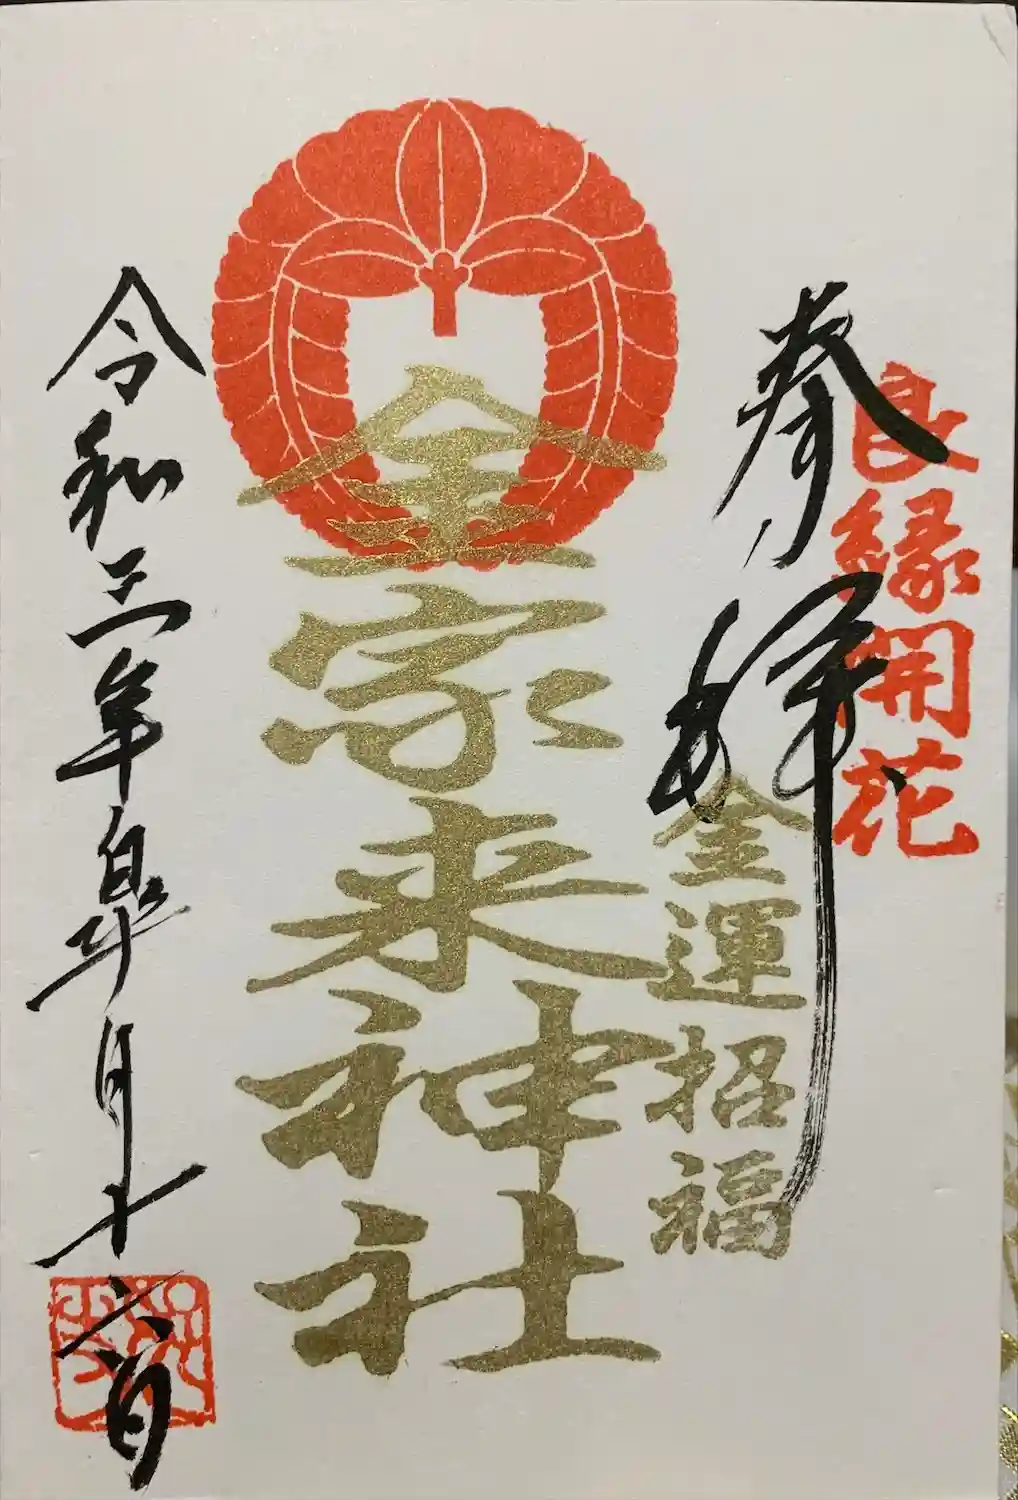 良縁開花
奉拝
金運招福
金家来神社
令和三年皐月十六日